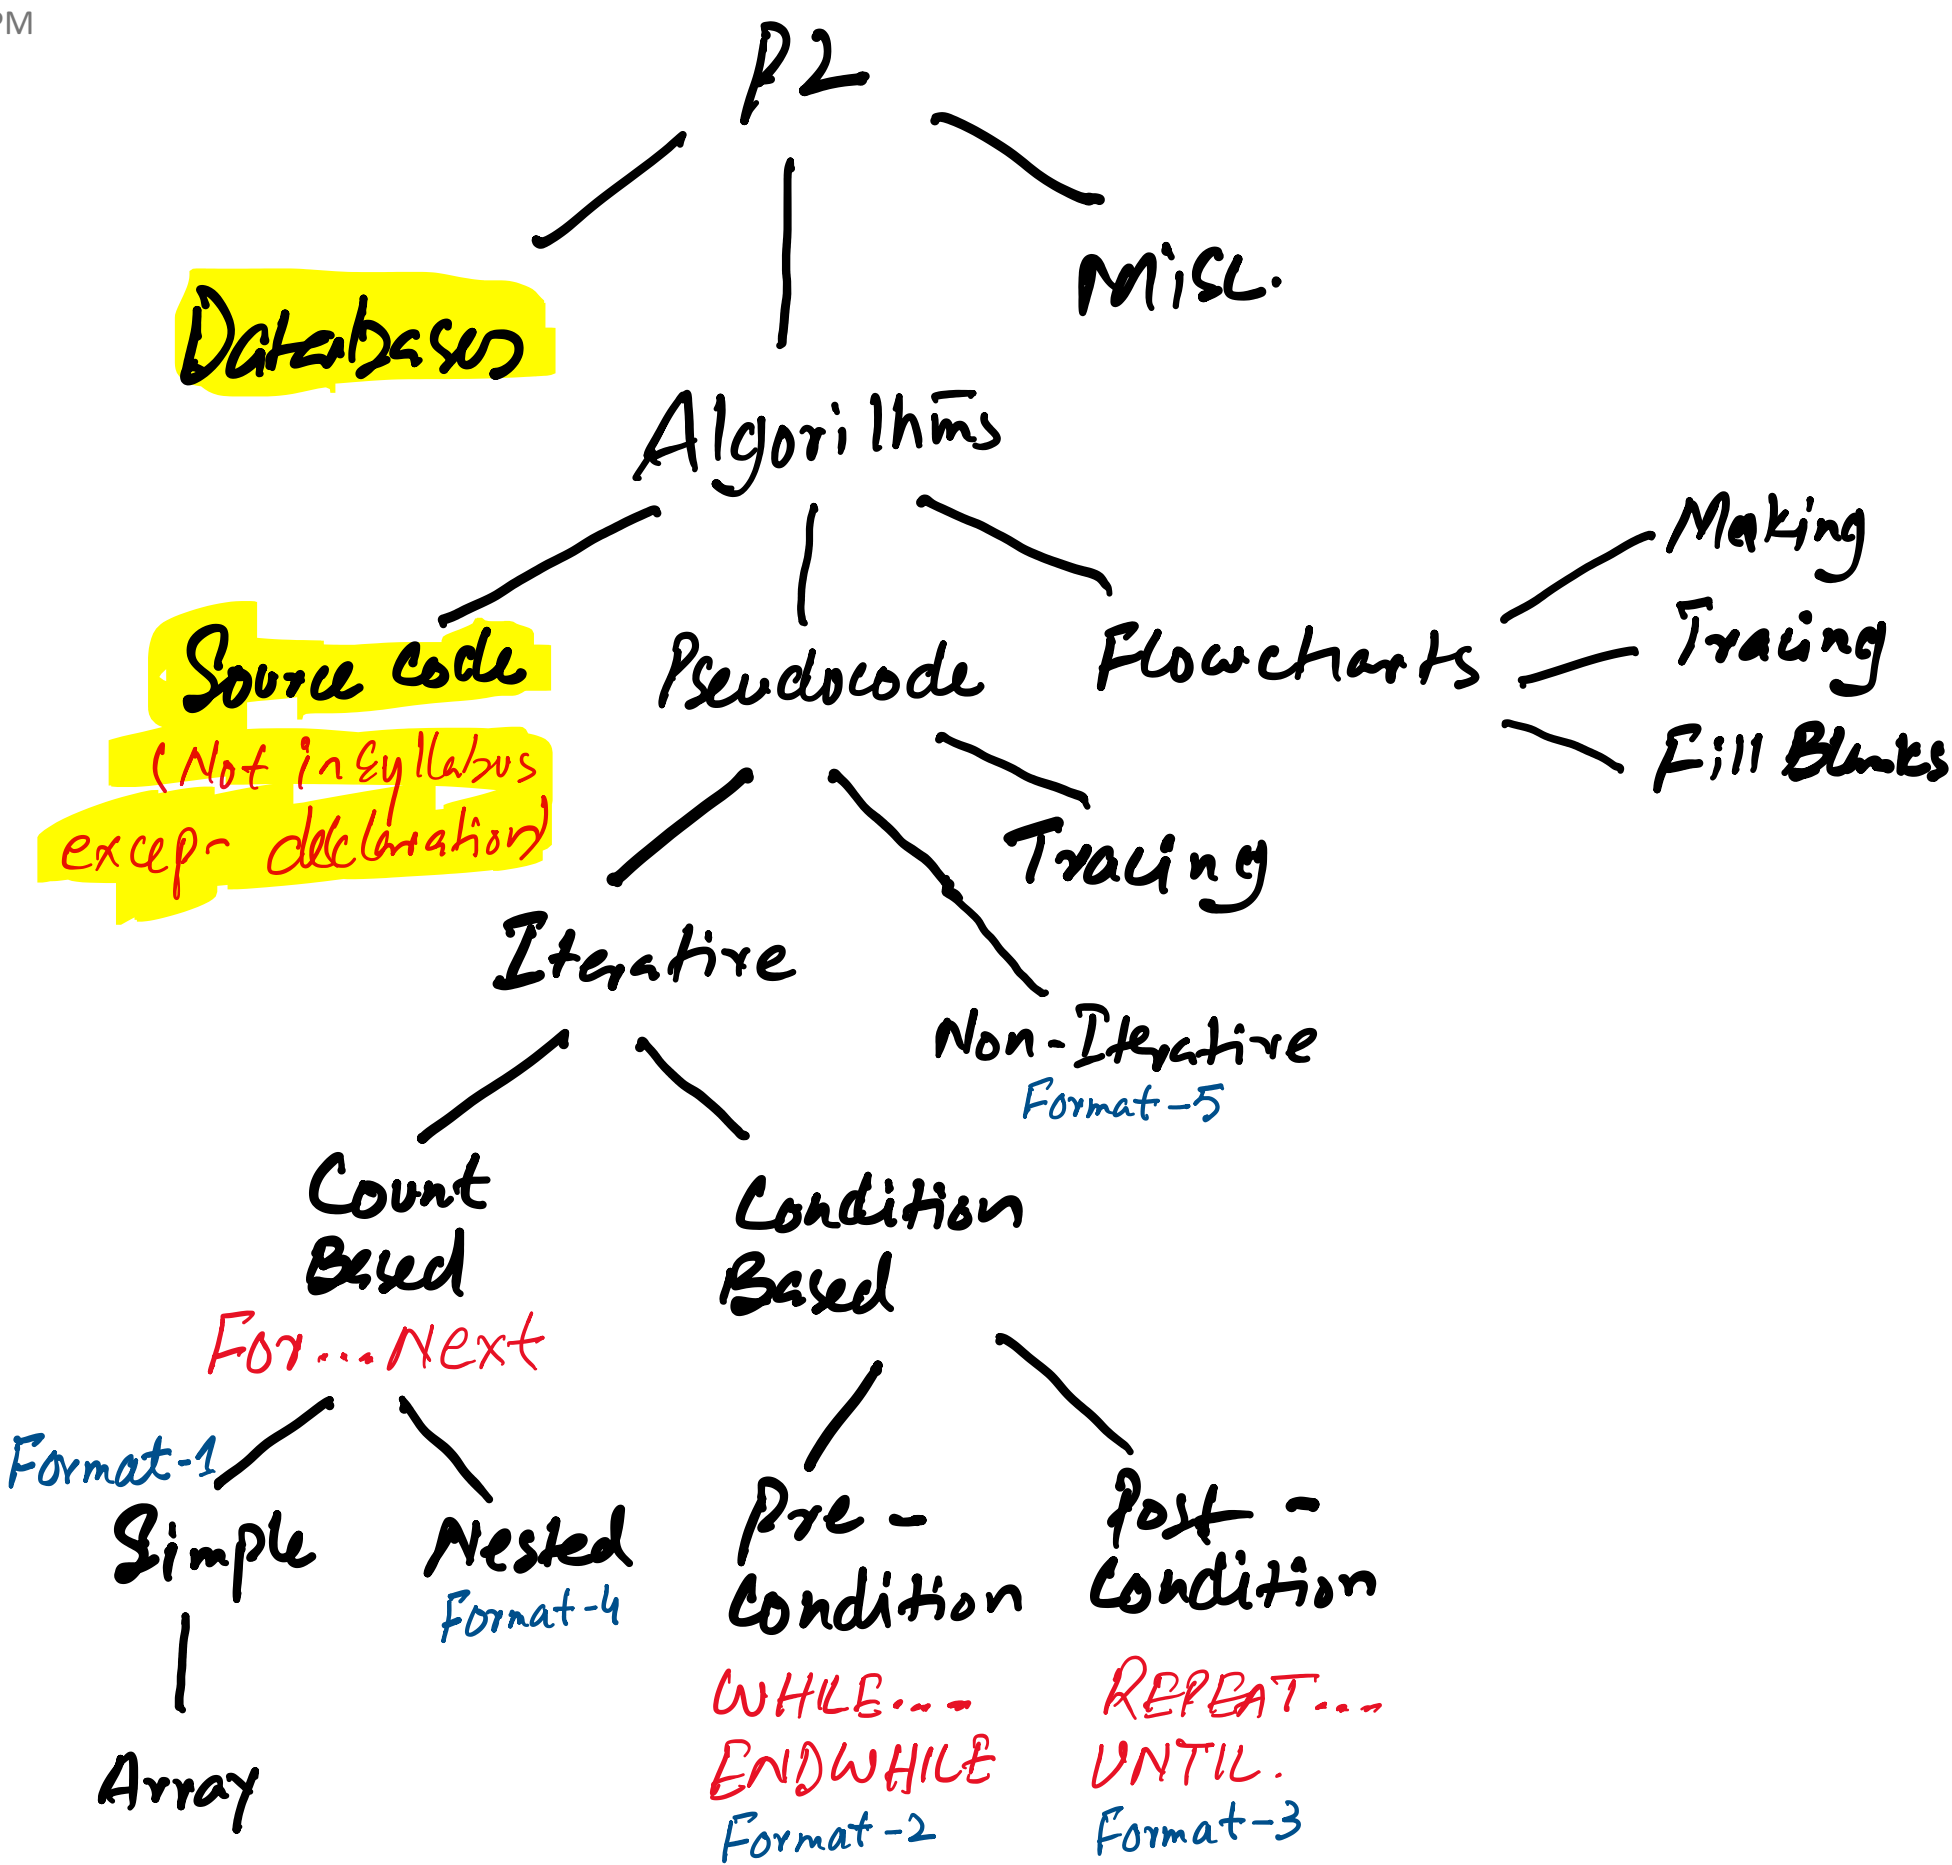 PM
P2
Databases
Misc.
Algorithms
Source code
(Not in syllabus
excep- declaration)
Pseudocode
Flowcharts
Making
Tracing
Fill Blanks
Iterative
Tracing
Non-Iterative
Format-5
Count
Based
For...Next
Condition
Based
Format-1
Simple
Nested
Format-4
Array
Pre-
Condition
WHILE...-
ENDWHILE
Format-2
Post-
Condition
REPEAT...-
UNTIL.
Format-3